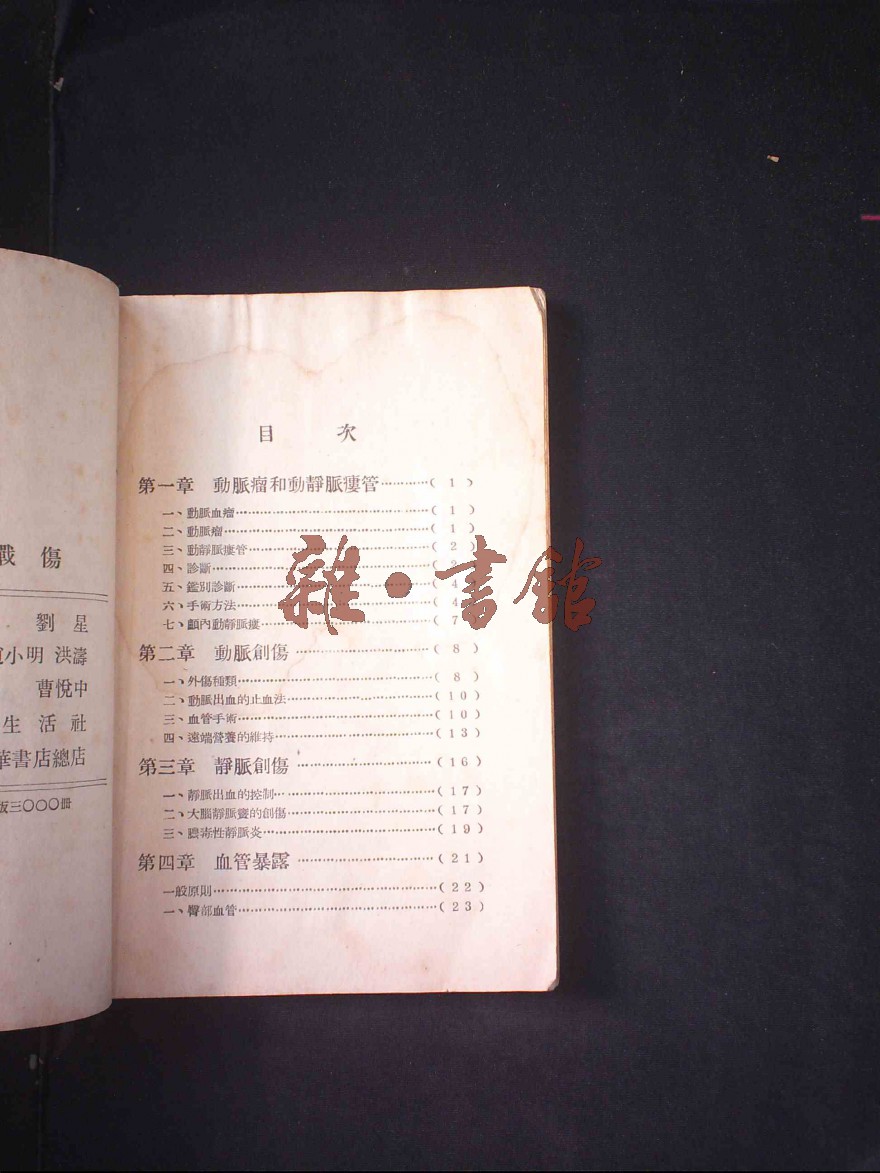 戰傷
劉星
小明 洪濤
曹悅中
生活社
華書店總店
版三〇〇〇冊
目 次
第一章 動脈瘤和動靜脈瘻管…………( 1 )
一、動脈血瘤…………( 1 )
二、動脈瘤…………( 1 )
三、動靜脈瘻管…………( 2 )
四、診斷…………
五、鑑別診斷…………( 4
六、手術方法…………( 4
七、顱內動靜脈瘻…………( 7
第二章 動脈創傷…………( 8 )
一、外傷種類…………( 8 )
二、動脈出血的止血法…………( 10 )
三、血管手術…………( 10 )
四、遠端營養的維持…………( 13 )
第三章 靜脈創傷…………( 16 )
一、靜脈出血的控制…………( 17 )
二、大腦靜脈竇的創傷…………( 17 )
三、膿毒性靜脈炎…………( 19 )
第四章 血管暴露…………( 21 )
一般原則…………( 22 )
一、臀部血管…………( 23 )
雜·書館